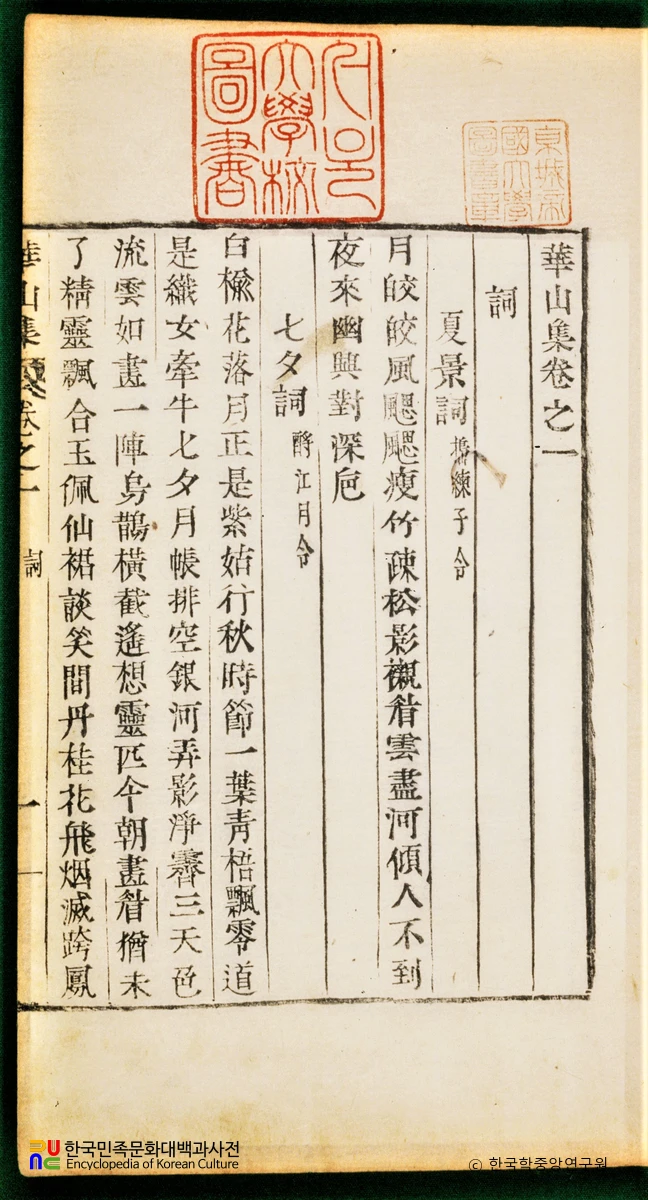 서울大學校圖書
京城帝國大學圖書章
華山集卷之一
詞
夏景詞 搗練子令
月皎皎風颸颸瘦竹疎松影襯眉雲盡河傾人不到
夜來幽興對深巵
七夕詞 酹江月令
白楡花落月正是紫姑行秋時節一葉靑梧飄零道
是織女牽牛七夕月帳排空銀河弄影淨霽三天色
流雲如畫一陣烏鵲橫截遙想靈匹今朝畫眉猶未
了精靈飄合玉佩仙裾談笑間丹桂花飛烟滅跨鳳
華山集 卷之一 詞 一
한국민족문화대백과사전
Encyclopedia of Korean Culture
© 한국학중앙연구원